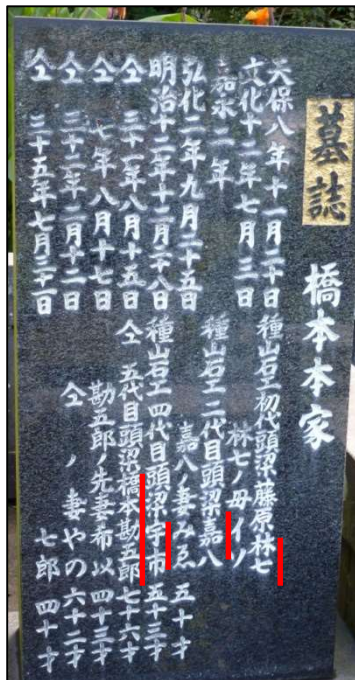 墓誌
橋本本家
天保八年十一月二十日 種山石工初代頭梁藤原林七
文化十二年七月三日 林七ノ母イノ
嘉永二年 種山石工二代目頭梁嘉八
弘化二年九月二十五日 嘉八ノ妻みゑ 五十才
明治十二年十二月二十八日 種山石工四代目頭梁宇市 五十三才
仝 三十年八月十五日 仝 五代目頭梁橋本勘五郎 七十六才
仝 七年八月十七日 勘五郎ノ先妻希以 四十三才
仝 三十二年二月十二日 仝ノ妻やの 六十二才
仝 三十五年七月三十一日 七郎 四十才